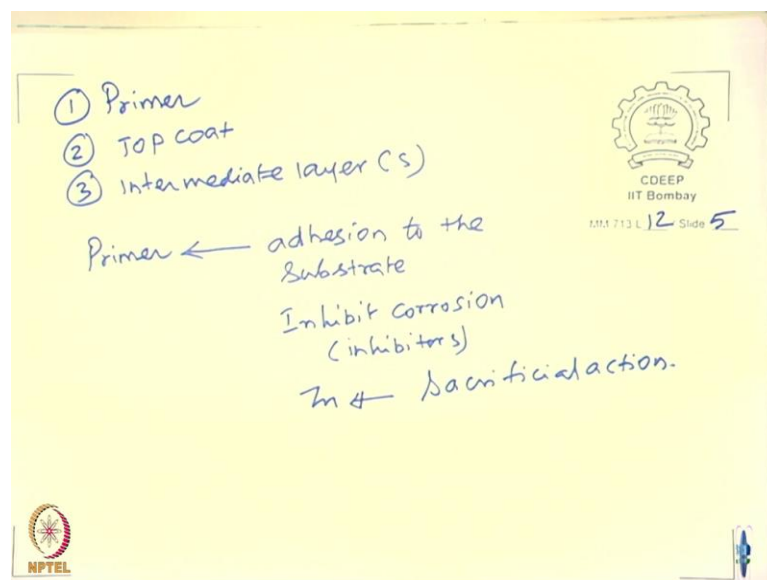 ① Primer
② TOP coat
③ Intermediate layer (s)
CDEEP
IIT Bombay
MM 713 L 12 Slide 5
Primer ← adhesion to the
Substrate
Inhibit corrosion
(inhibitors)
Zn ← Sacrificial action.
NPTEL